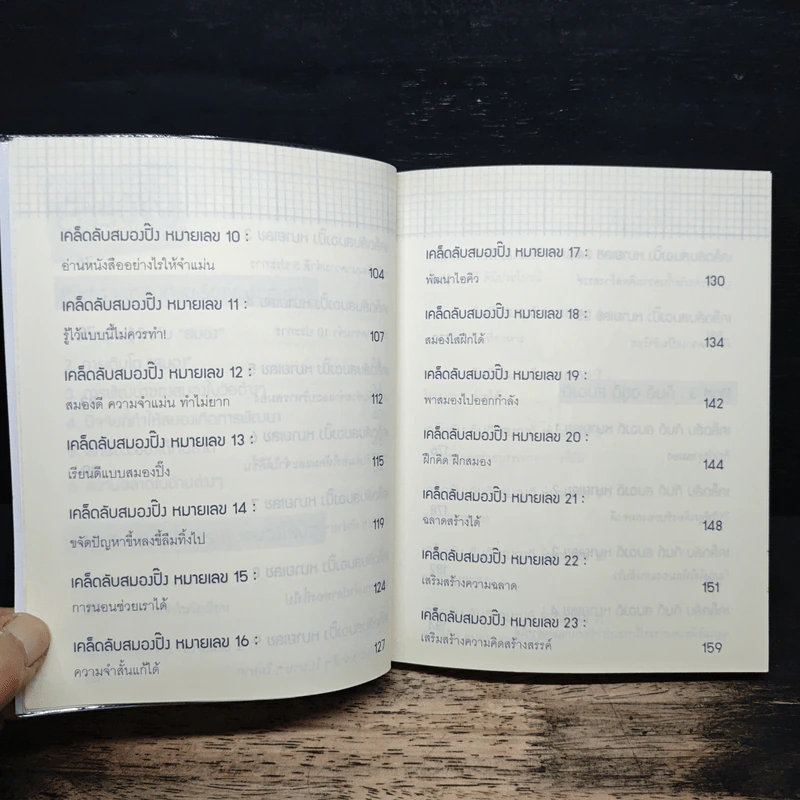 เคล็ดลับสมองปิ๊ง หมายเลข 10 :
อ่านหนังสืออย่างไรให้จำแม่น 104
เคล็ดลับสมองปิ๊ง หมายเลข 11 :
รู้ไว้แบบนี้ไม่ควรทำ! 107
เคล็ดลับสมองปิ๊ง หมายเลข 12 :
สมองดี ความจำแม่น ทำไม่ยาก 112
เคล็ดลับสมองปิ๊ง หมายเลข 13 :
เรียนดีแบบสมองปิ๊ง 115
เคล็ดลับสมองปิ๊ง หมายเลข 14 :
ขจัดปัญหาขี้หลงขี้ลืมทิ้งไป 119
เคล็ดลับสมองปิ๊ง หมายเลข 15 :
การนอนช่วยเราได้ 124
เคล็ดลับสมองปิ๊ง หมายเลข 16 :
ความจำสั้นแก้ได้ 127
เคล็ดลับสมองปิ๊ง หมายเลข 17 :
พัฒนาไอคิว 130
เคล็ดลับสมองปิ๊ง หมายเลข 18 :
สมองใสฝึกได้ 134
เคล็ดลับสมองปิ๊ง หมายเลข 19 :
พาสมองไปออกกำลัง 142
เคล็ดลับสมองปิ๊ง หมายเลข 20 :
ฝึกคิด ฝึกสมอง 144
เคล็ดลับสมองปิ๊ง หมายเลข 21 :
ฉลาดสร้างได้ 148
เคล็ดลับสมองปิ๊ง หมายเลข 22 :
เสริมสร้างความฉลาด 151
เคล็ดลับสมองปิ๊ง หมายเลข 23 :
เสริมสร้างความคิดสร้างสรรค์ 159